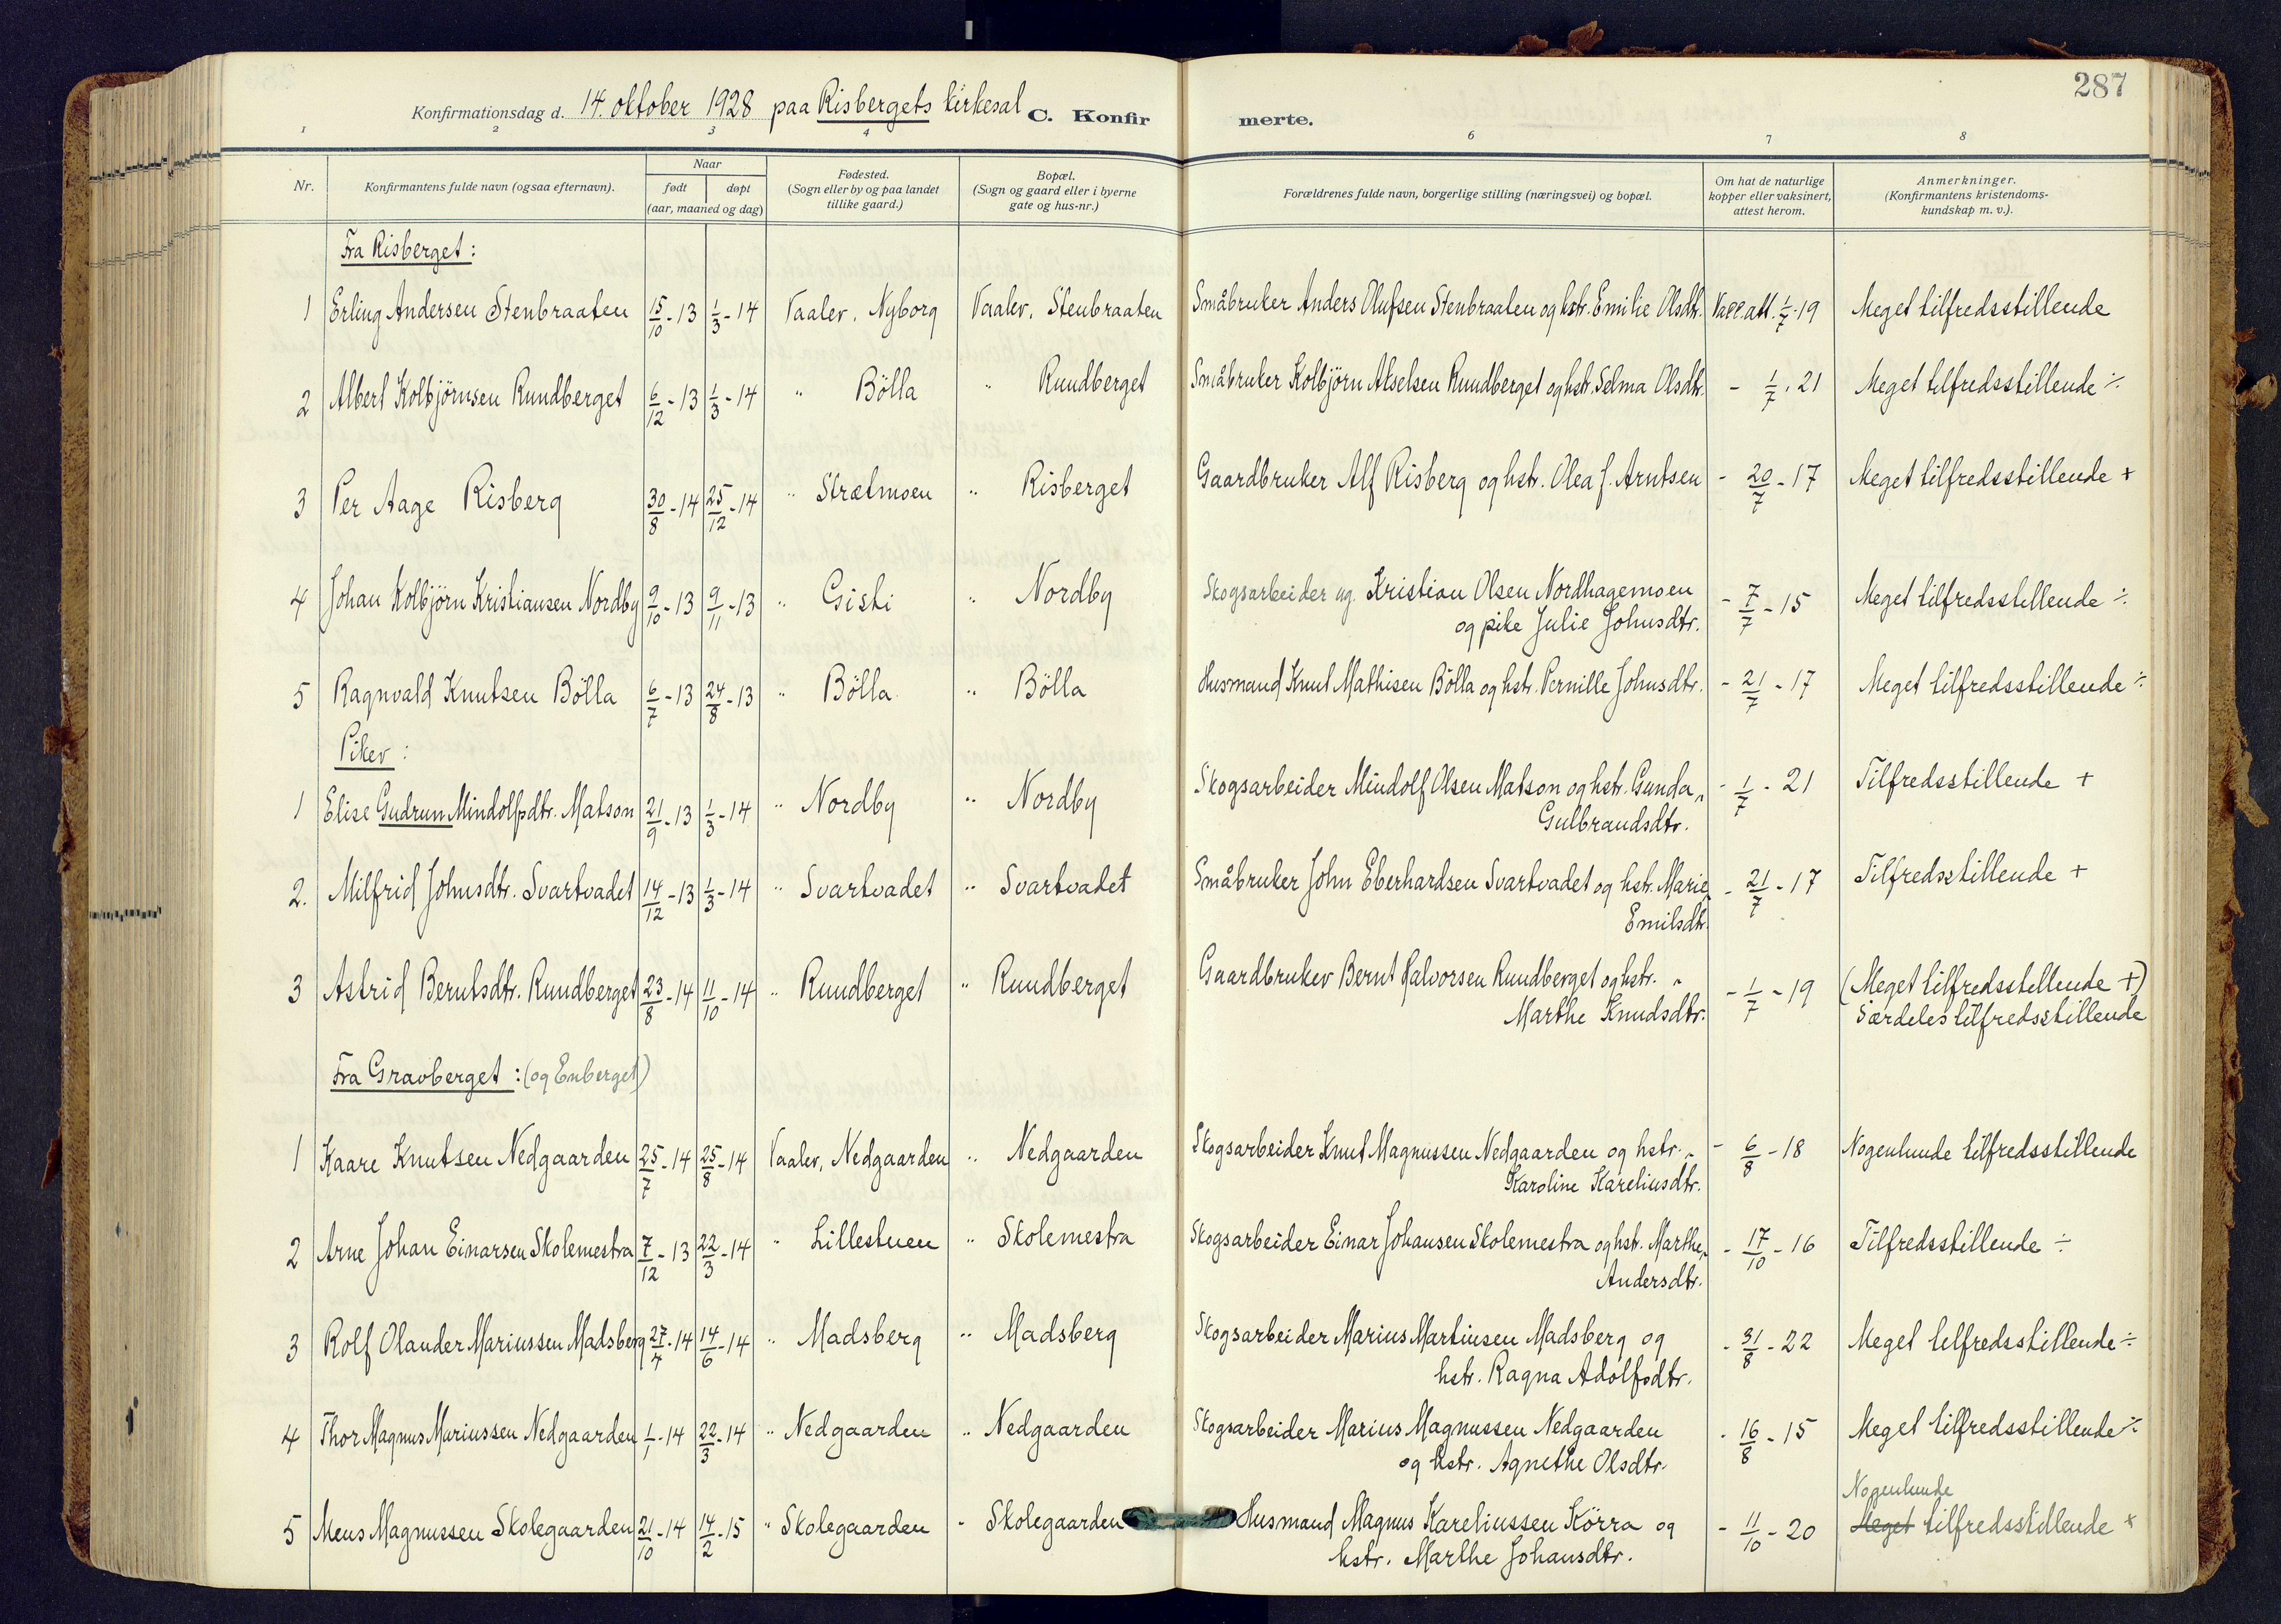 287
Konfirmationsdag d. 14. oktober 1928 paa Risbergets kirkesal C. Konfirmerte.
1 2 3 4 6 7 8
Nr. Konfirmantens fulde navn (ogsaa efternavn). Naar født døpt (aar, maaned og dag) Fødested. (Sogn eller by og paa landet tillike gaard.) Bopæl. (Sogn og gaard eller i byerne gate og hus-nr.) Forældrenes fulde navn, borgerlige stilling (næringsvei) og bopæl. Om hat de naturlige kopper eller vaksinert, attest herom. Anmerkninger. (Konfirmantens kristendoms-kundskap m. v.).
Fra Risberget:
1 Erling Andersen Stenbraaten 15/10-13 1/3-14 Vaaler, Nyborg Vaaler, Stenbraaten Småbruker Anders Olufsen Stenbraaten og hstr. Emilie Olsdtr. Vacc.att. 1/7-19 Meget tilfredsstillende
2 Albert Kolbjörnsen Rundberget 6/12-13 1/3-14 " Bölla " Rundberget Småbruker Kolbjörn Akselsen Rundberget og hstr. Selma Olsdtr. - 1/7-21 Meget tilfredsstillende ÷
3 Per Aage Risberg 30/8-14 25/12-14 " Strætmoen " Risberget Gaardbruker Alf Risberg og hstr. Olea J. Arntsen - 20/7-17 Meget tilfredsstillende +
4 Johan Kolbjörn Kristiansen Nordby 9/10-13 9/11-13 " Gisti " Nordby Skogsarbeider ug. Kristian Olsen Nordhagemoen - 7/7-15 Meget tilfredsstillende ÷
og pike Julie Johnsdtr.
5 Ragnvald Knutsen Bölla 6/7-13 24/8-13 " Bölla " Bölla Husmand Knut Mathisen Bölla og hstr. Pernille Johnsdtr. - 21/7-17 Meget tilfredsstillende ÷
Piker:
1 Elise Gudrun Mindolfsdtr. Matson 21/9-13 1/3-14 " Nordby " Nordby Skogsarbeider Mindolf Olsen Matson og hstr. Gunda - 1/7-21 Tilfredsstillende +
Gulbrandsdtr.
2. Milfrid Johnsdtr. Svartvadet 14/12-13 1/3-14 " Svartvadet " Svartvadet Småbruker John Eberhardsen Svartvadet og hstr. Marie - 21/7-17 Tilfredsstillende +
Emilsdtr.
3 Astrid Berntsdtr. Rundberget 23/8-14 11/10-14 " Rundberget " Rundberget Gaardbruker Bernt Halvorsen Rundberget og hstr. - 1/7-19 (Meget tilfredsstillende +)
Marthe Knudsdtr. Særdeles tilfredsstillende
Fra Gravberget: (og Enberget)
1 Kaare Knutsen Nedgaarden 25/7-14 25/8-14 Vaaler, Nedgaarden " Nedgaarden Skogsarbeider Knut Magnussen Nedgaarden og hstr. - 6/8-18 Nogenlunde tilfredsstillende
Karoline Kareliusdtr.
2 Arne Johan Einarsen Skolemestra 7/12-13 22/3-14 " Lillestuen " Skolemestra Skogsarbeider Einar Johansen Skolemestra og hstr. Marthe - 17/10-16 Tilfredsstillende ÷
Andersdtr.
3 Rolf Olander Mariussen Madsberg 27/4-14 14/6-14 " Madsberg " Madsberg Skogsarbeider Marius Martinsen Madsberg og - 31/8-22 Meget tilfredsstillende ÷
hstr. Ragna Adolfsdtr.
4 Thor Magnus Mariussen Nedgaarden 1/1-14 22/3-14 " Nedgaarden " Nedgaarden Skogsarbeider Marius Magnussen Nedgaarden - 16/8-15 Meget tilfredsstillende ÷
og hstr. Agnethe Olsdtr.
Nogenlunde
5 Mens Magnussen Skolegaarden 21/10-14 14/2-15 " Skolegaarden " Skolegaarden Husmand Magnus Kareliussen Körra og - 11/10-20 Meget tilfredsstillende +
hstr. Marthe Johansdtr.